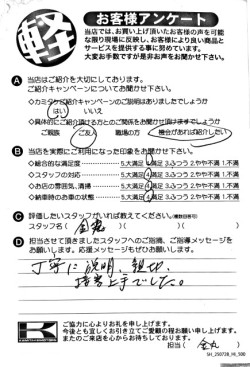 軽
お客様アンケート
当店では、お買い上げ頂いたお客様の声を可能
な限り現場に反映し、お客様により良い商品と
サービスを提供する事に努めています。
大変お手数ですが是非お声をお聞かせ下さい。
A 当店はご紹介を大切にしております。
ご紹介キャンペーンについてお聞かせ下さい。
◇カミタケご紹介キャンペーンの説明はありましたでしょうか
はい いいえ
◇具体的にご紹介頂ける方とのご関係をお聞かせ頂けますでしょうか
ご親族 ご友人 職場の方 機会があれば紹介したい
B 当店を実際にご利用になった印象をお聞かせ下さい。
◇総合的な満足度 5.大満足 4.満足 3.ふつう 2.やや不満 1.不満
◇スタッフの対応 5.大満足 4.満足 3.ふつう 2.やや不満 1.不満
◇お店の雰囲気、清掃 5.大満足 4.満足 3.ふつう 2.やや不満 1.不満
◇納車時のお車の状態 5.大満足 4.満足 3.ふつう 2.やや不満 1.不満
C 評価したいスタッフがいれば教えてください。(複数回答可)
スタッフ名( )
D 担当させて頂きましたスタッフへのご指摘、ご指導メッセージを
お願いします。応援メッセージもぜひお願いします。
丁寧に説明、親切、
接客上手でした。
ご協力に心よりお礼を申し上げます。
今後とも宜しくお引き立てご愛顧の程お願い申し上げます。
またのご来店を心からお待ちしております。
担当( 金丸 )